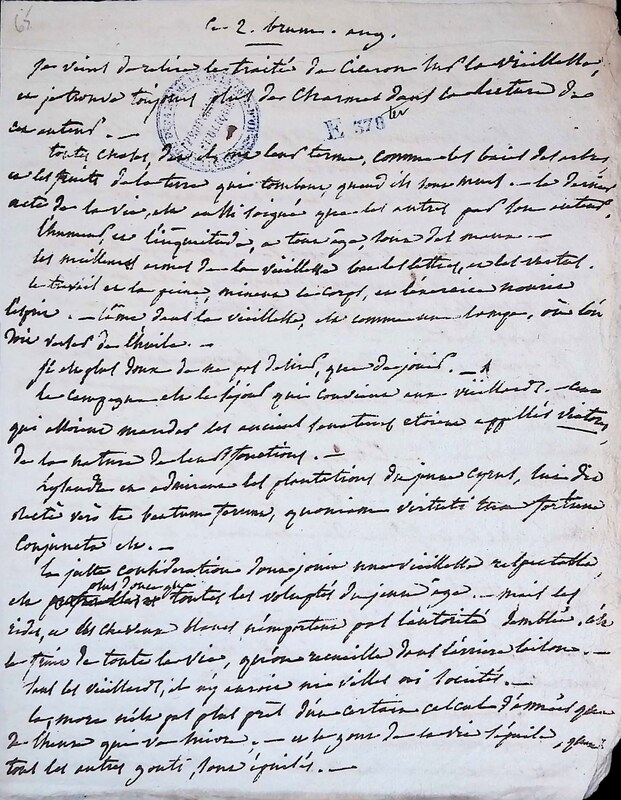 65
ce 2. brum. an 9.
je viens de relire le traité de Ciceron sur la vieillesse,
et je trouve toujours plus de charmes dans la lecture de
cet auteur. —
E 378 ter
toutes choses, dit-il, ont leur terme, comme les baies des arbres
et les fruits de la terre qui tombent, quand ils sont murs. — le dernier
acte de la vie, est aussi soigné que les autres par son auteur.
l'humeur, et l'inquiétude, à tout âge, sont des maux. —
les meilleures armes de la vieillesse sont les lettres, et les vertus.
le travail et la peine minent le corps, et l'exercice nourrit
l'esprit. — l'âme dans la vieillesse, est comme une lampe, où l'on
doit verser de l'huile. —
il est plus doux de ne pas desirer, que de jouir. —
la campagne est le séjour qui convient aux vieillards. — ceux
qui alloient mander les anciens senateurs etoient appellés viatores,
de la nature de leurs fonctions. —
Lysandre en admirant les plantations du jeune Cyrus, lui dit
rectè verò te beatum ferunt, quoniam virtuti tuae fortuna
conjuncta est. —
la juste consideration dont jouit une vieillesse respectable,
est plus douce que toutes les voluptés du jeune âge. — mais les
rides, et les cheveux blancs n'emportent pas l'autorité d'emblée. c'est
le fruit de toute la vie, qu'on recueille dans l'arrière saison. —
sans les vieillards, il n'y auroit ni villes ni sociétés. —
la mort n'est pas plus près d'un certain calcul d'années que
de l'heure qui va suivre. — et le gout de la vie s'épuise, quand
tous les autres gouts, sont épuisés. —